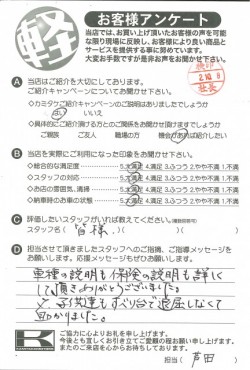 軽
お客様アンケート
当店では、お買い上げ頂いたお客様の声を可能
な限り現場に反映し、お客様により良い商品と
サービスを提供する事に努めています。
大変お手数ですが是非お声をお聞かせ下さい。
2.10.8
社長
A 当店はご紹介を大切にしております。
ご紹介キャンペーンについてお聞かせ下さい。
◇カミタケご紹介キャンペーンの説明はありましたでしょうか
はい いいえ
◇具体的にご紹介頂ける方とのご関係をお聞かせ頂けますでしょうか
ご親族 ご友人 職場の方 機会があれば紹介したい
B 当店を実際にご利用になった印象をお聞かせ下さい。
◇総合的な満足度 5.大満足 4.満足 3.ふつう 2.やや不満 1.不満
◇スタッフの対応 5.大満足 4.満足 3.ふつう 2.やや不満 1.不満
◇お店の雰囲気、清掃 5.大満足 4.満足 3.ふつう 2.やや不満 1.不満
◇納車時のお車の状態 5.大満足 4.満足 3.ふつう 2.やや不満 1.不満
C 評価したいスタッフがいれば教えてください。(複数回答可)
スタッフ名( 皆様、 )( )
D 担当させて頂きましたスタッフへのご指摘、ご指導メッセージを
お願いします。応援メッセージもぜひお願いします。
車種の説明も保険の説明も詳しく
して頂きありがとうございました。
子供達もすべり台で退屈しなくて
助かりました。
ご協力に心よりお礼を申し上げます。
今後とも宜しくお引き立てご愛顧の程お願い申し上げます。
またのご来店を心からお待ちしております。
担当( 芦田 )